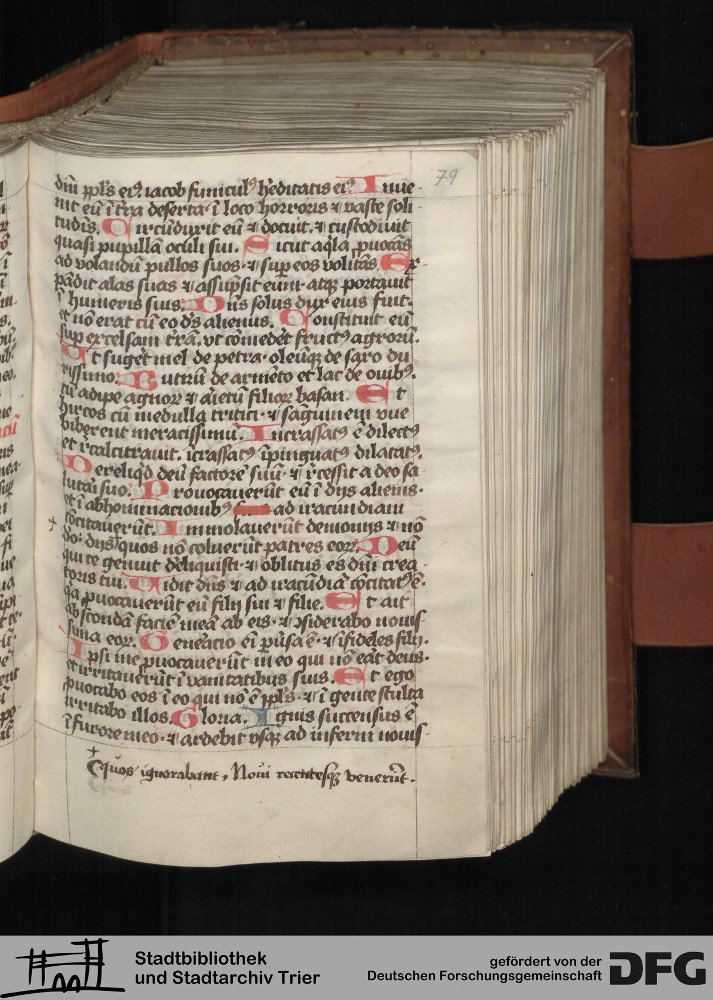 79
dn̄i ppl̄s eiꝰ iacob funiculꝰ h̓editatis eiꝰ Inue-
nit eū ī t̓ra deserta · ī loco horroris ⁊ vaste soli
tudīs. Circūduxit eū ⁊ docuit · ⁊ custodiuit
quasi pupillā oculi sui. Sicut aq̇la ꝓuocās
ad volandū pullos suos · ⁊ sup̱ eos volitās. Ex
pādit alas suas ⁊ assūpsit eum · atqꝫ portauit
ī humeris suis. Dn̄s solus dux eius fuit ·
et nō erat cū eo dꝰs alienus. Constituit eū
sup̱ excelsam t̓rā. vt comedet̓ fructꝰ agrorū.
Ut suget̓ mel de petra · oleūqꝫ de saxo du
rissimo. Butirū de armēto et lac de ouibꝰ.
cū adipe agnoꝝ ⁊ aꝛietū filioꝝ basan. Et
hircos cū medulla tritici · ⁊ sāguinem vue
biberent meracissimū. Incrassatꝰ ē dilectꝰ
et recalcitrauit. īcrassatꝰ īpinguatꝰ dilatatꝰ.
Dereliq̇d deū factorē suū · ⁊ r̓cessit a deo sa
lutāi suo. Prouocauerūt eū ī dijs alienis ·
et ī abhominacionibꝰ ad iracundiam
cōcitauerūt. Immolauerūt demonijs ⁊ nō
do : dijs quos nō coluerūt patres eoꝝ. Deū
qui te genuit deliquisti · ⁊ oblitus es dn̄i crea
toris tui. Uidit dn̄s ⁊ ad iracūdiā cōcitatꝰ ē ·
q̇a ꝓuocauerūt eū filij sui ⁊ filie. Et ait
abscondā faciē meā ab eis · ⁊ ꝯsiderabo nouis
sima eoꝝ. Generacio ei̅ p̱u̓sa ē · ⁊ īfideles filij.
Ipsi me ꝓuocauerūt in eo qui nō eāt deus ·
et irritauerūt ī vanitatibus suis. Et ego
ꝓuocabo eos ī eo qui nō ē ppl̄s · ⁊ ī gente stulta
irritabo illos. Gloria. Ignis succensus ē
ī furore meo · ⁊ ardebit vsqꝫ ad inferni nouis
Quos ignorabant, Noui recentesqꝫ venerūt.
Stadtbibliothek
und Stadtarchiv Trier
gefördert von der
Deutschen Forschungsgemeinschaft DFG